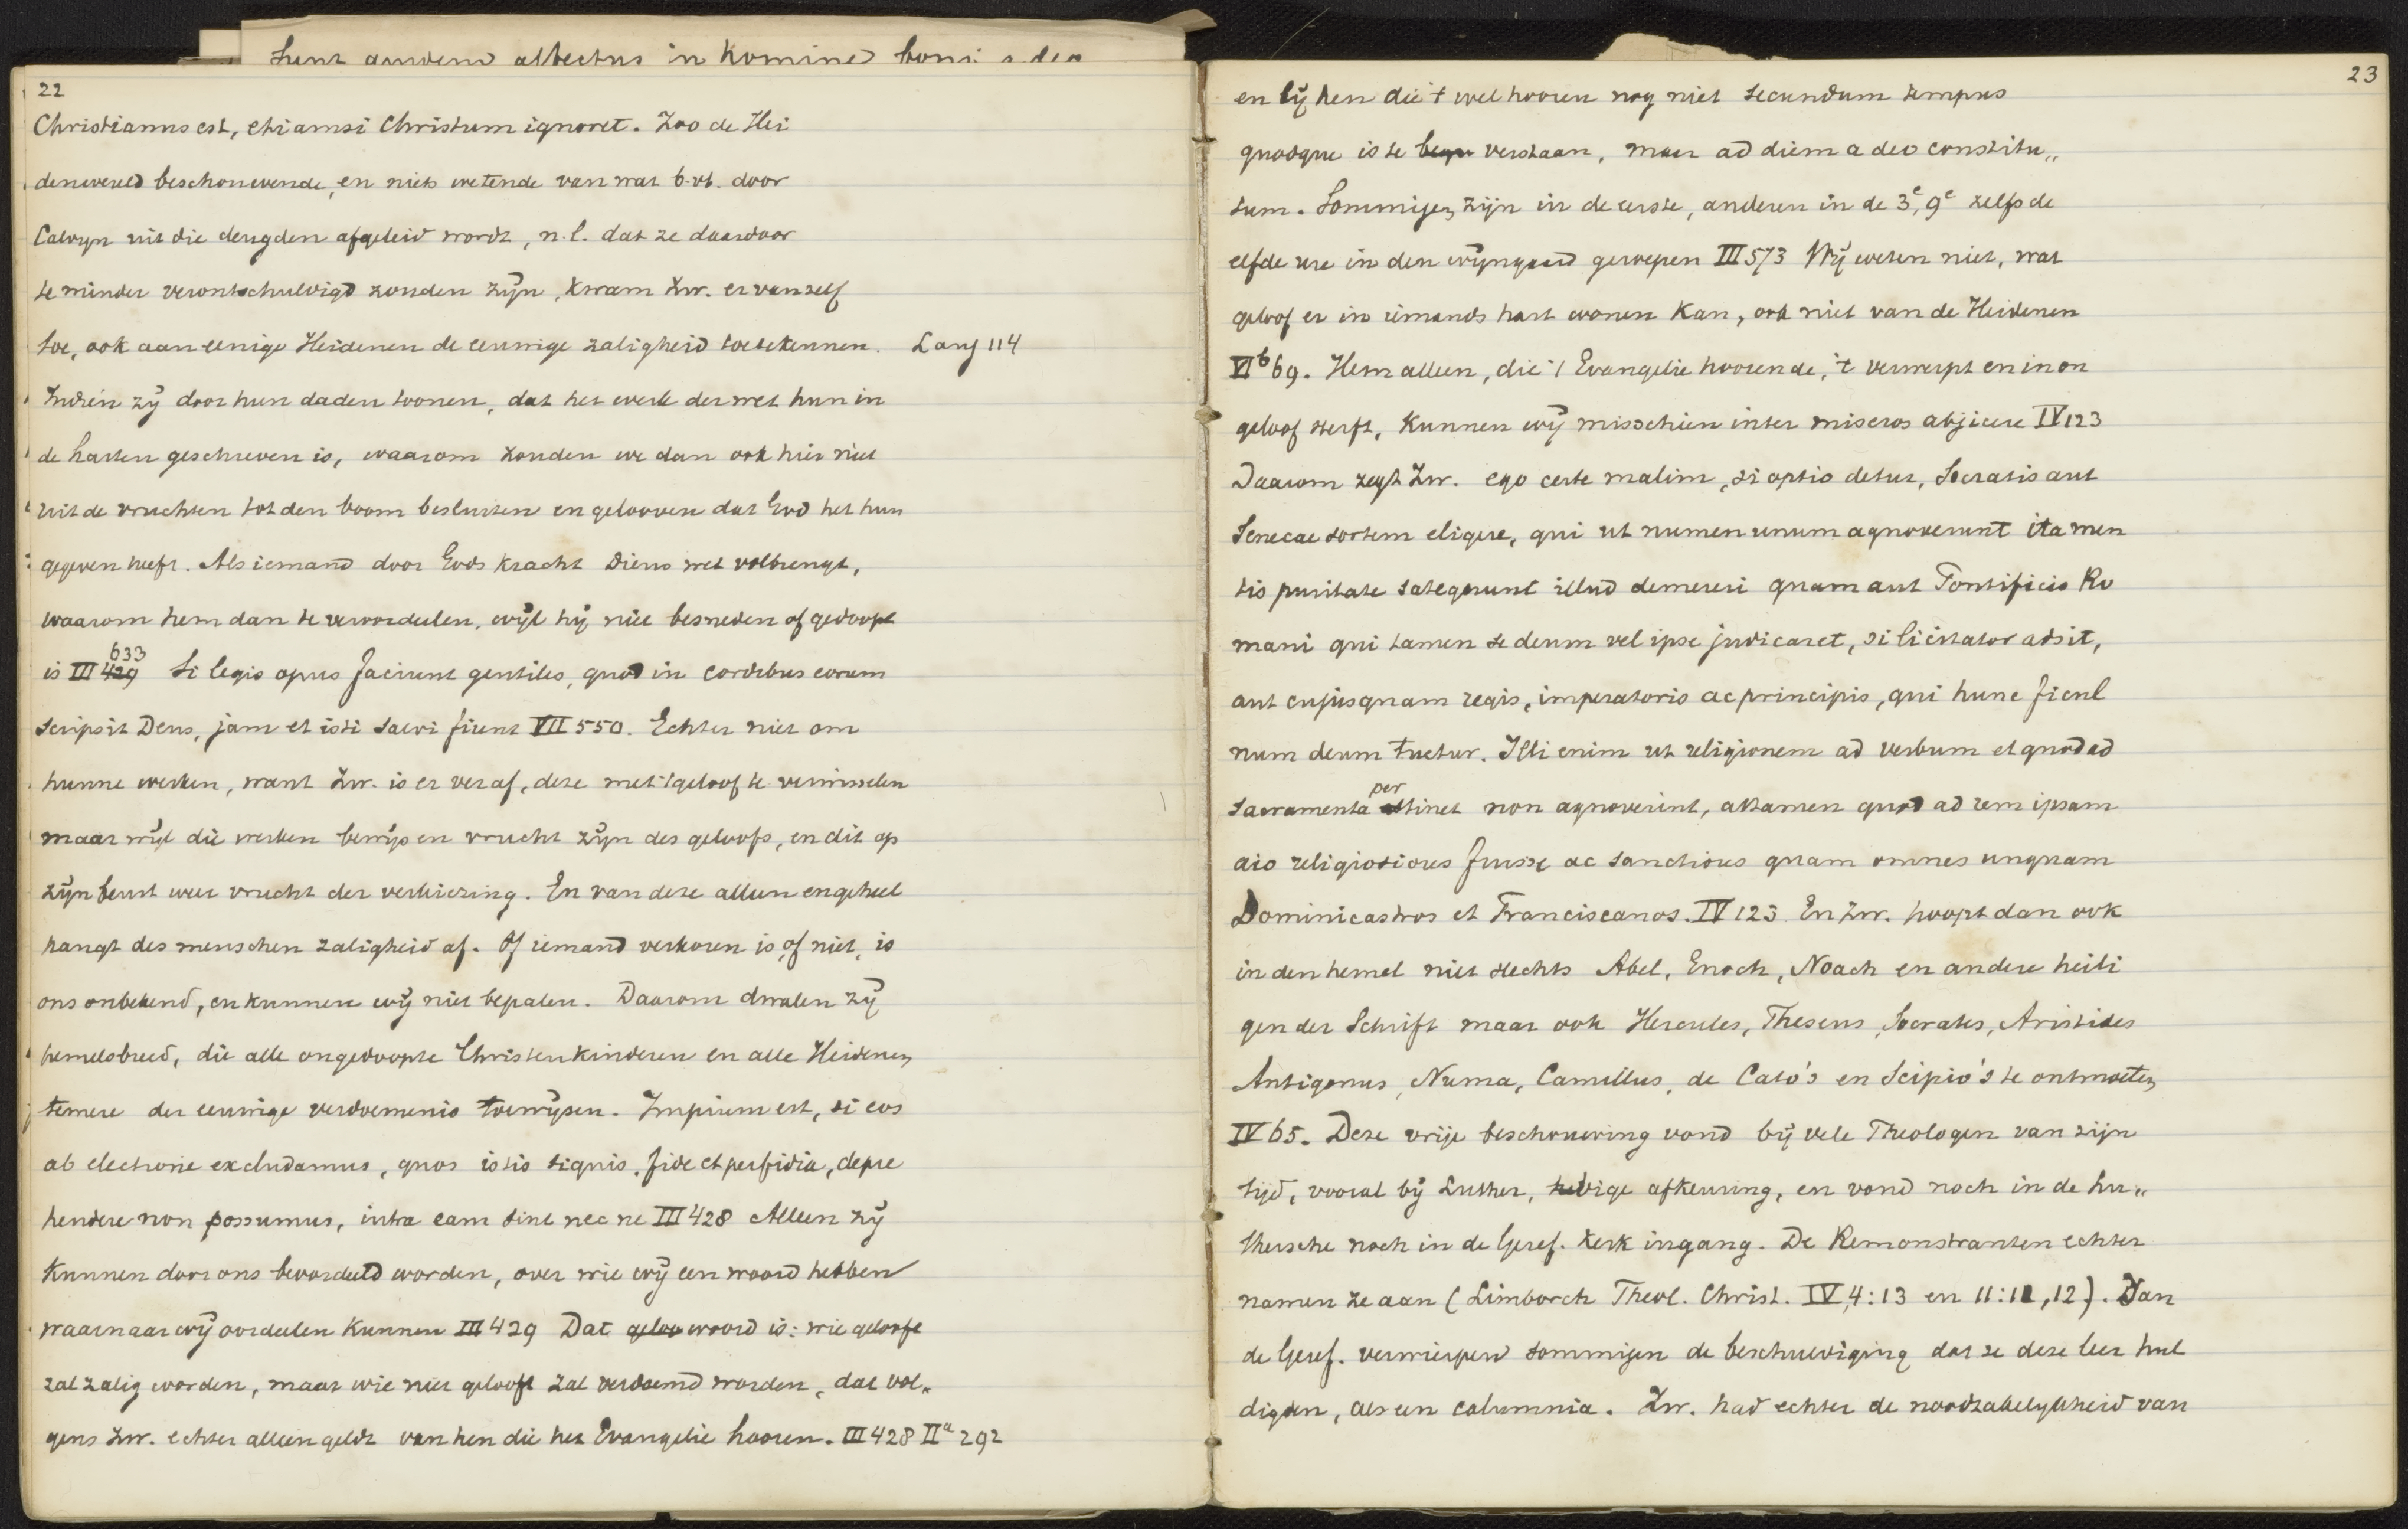 22
Christianus est, etiamsi Christum ignoret. Zoo de Hei
denwereld beschouwende, en niets wetende van wat b.vb. door
Calvyn uit die deugden afgeleid wordt, n.l. dat ze daardoor
te minder verontschuldigd zouden zyn, kwam Zw. er vanzelf
toe, ook aan eenige Heidenen de eeuwige zaligheid toetekennen. Lang 114
Indien zy door hun daden toonen, dat het werk der wet hun in
de harten geschreven is, waarom zouden we dan ook hier niet
uit de vruchten tot den boom besluiten en gelooven dat God het hun
gegeven heeft. Als iemand door Gods kracht Diens wet volbrengt,
waarom hem dan te veroordeelen, wyl hy niet besneden of gedoopt
is III 429 633 Si legis opus faciunt gentiles, quod in cordibus eorum
scripsit Deus, jam et isti salvi fiunt VII 550. Echter niet om
hunne werken, want Zw. is er ver af, deze met 't geloof te verwisselen
maar wyl die werken bewys en vrucht zyn des geloofs, en dit op
zyn beurt weer vrucht der verkiezing. En van deze alleen en geheel
hangt des menschen zaligheid af. Of iemand verkoren is, of niet, is
ons onbekend, en kunnen wy niet bepalen. Daarom dwalen zy
hemelsbreed, die alle ongedoopte Christenkinderen en alle Heidenen
temere der eeuwige verdoemenis toewyzen. Impium est, si eos
ab electione excludamus, quos istis signis, fide et perfidia, depre
hendere non possumus, intra eam sint nec ne III 428 Alleen zy
kunnen door ons beoordeeld worden, over wie wy een woord hebben
waarnaar wy oordeelen kunnen III 429 Dat geloo woord is: wie gelooft
zal zalig worden, maar wie niet gelooft zal verdoemd worden, dat vol„
gens Zw. echter alleen geldt van hen die het Evangelie hooren. III 428 IIa 292
23
en by hen die 't wel hooren nog niet secundum tempus
quodque is te verstaan, maar ad diem a deo constitu„
tum. Sommigen zijn in de eerste, anderen in de 3e, 9e zelfs de
elfde ure in den wyngaard geroepen III 573 Wy weten niet, wat
geloof er in iemands hart wonen kan, ook niet van de Heidenen
VIb 69. Hem alleen, die 't Evangelie hoorende, 't verwerpt en in on
geloof sterft, kunnen wy misschien inter miseros abjicere IV 123
Daarom zegt Zw. ego certe malim, si optio detur, Socratis aut
Senecae sortem eligere, qui ut numen unum agnoverunt ita men
tis puritate sategerunt illud demereri quam aut Pontificis Ro
mani qui tamen se deum vel ipse judicaret, si licitator adsit,
aut cujusquam regis, imperatoris ac principis, qui hunc ficul
num deum tuetur. Illi enim ut religionem ad verbum et quod ad
sacramenta pertinet non agnoverint, attamen quod ad rem ipsam
aio religiosiores fuisse ac sanctiores quam omnes unquam
Dominicastros et Franciscanos. IV 123 En Zw. hoopt dan ook
in den hemel niet slechts Abel, Enoch, Noach en andere heili
gen der Schrift maar ook Hercules, Theseus, Socrates, Aristides
Antigonus, Numa, Camillus, de Cato's en Scipio's te ontmoeten
IV 65. Deze vrije beschouwing vond by vele Theologen van zijn
tijd, vooral by Luther, hevige afkeuring, en vond noch in de Lu„
thersche noch in de Geref. Kerk ingang. De Remonstranten echter
namen ze aan (Limborch Theol. Christ. IV, 4:13 en 11:11, 12). Van
de Geref. verwierpen sommigen de beschuldiging dat ze deze leer hul
digden, als een calumnia. Zw. had echter de noodzakelykheid van